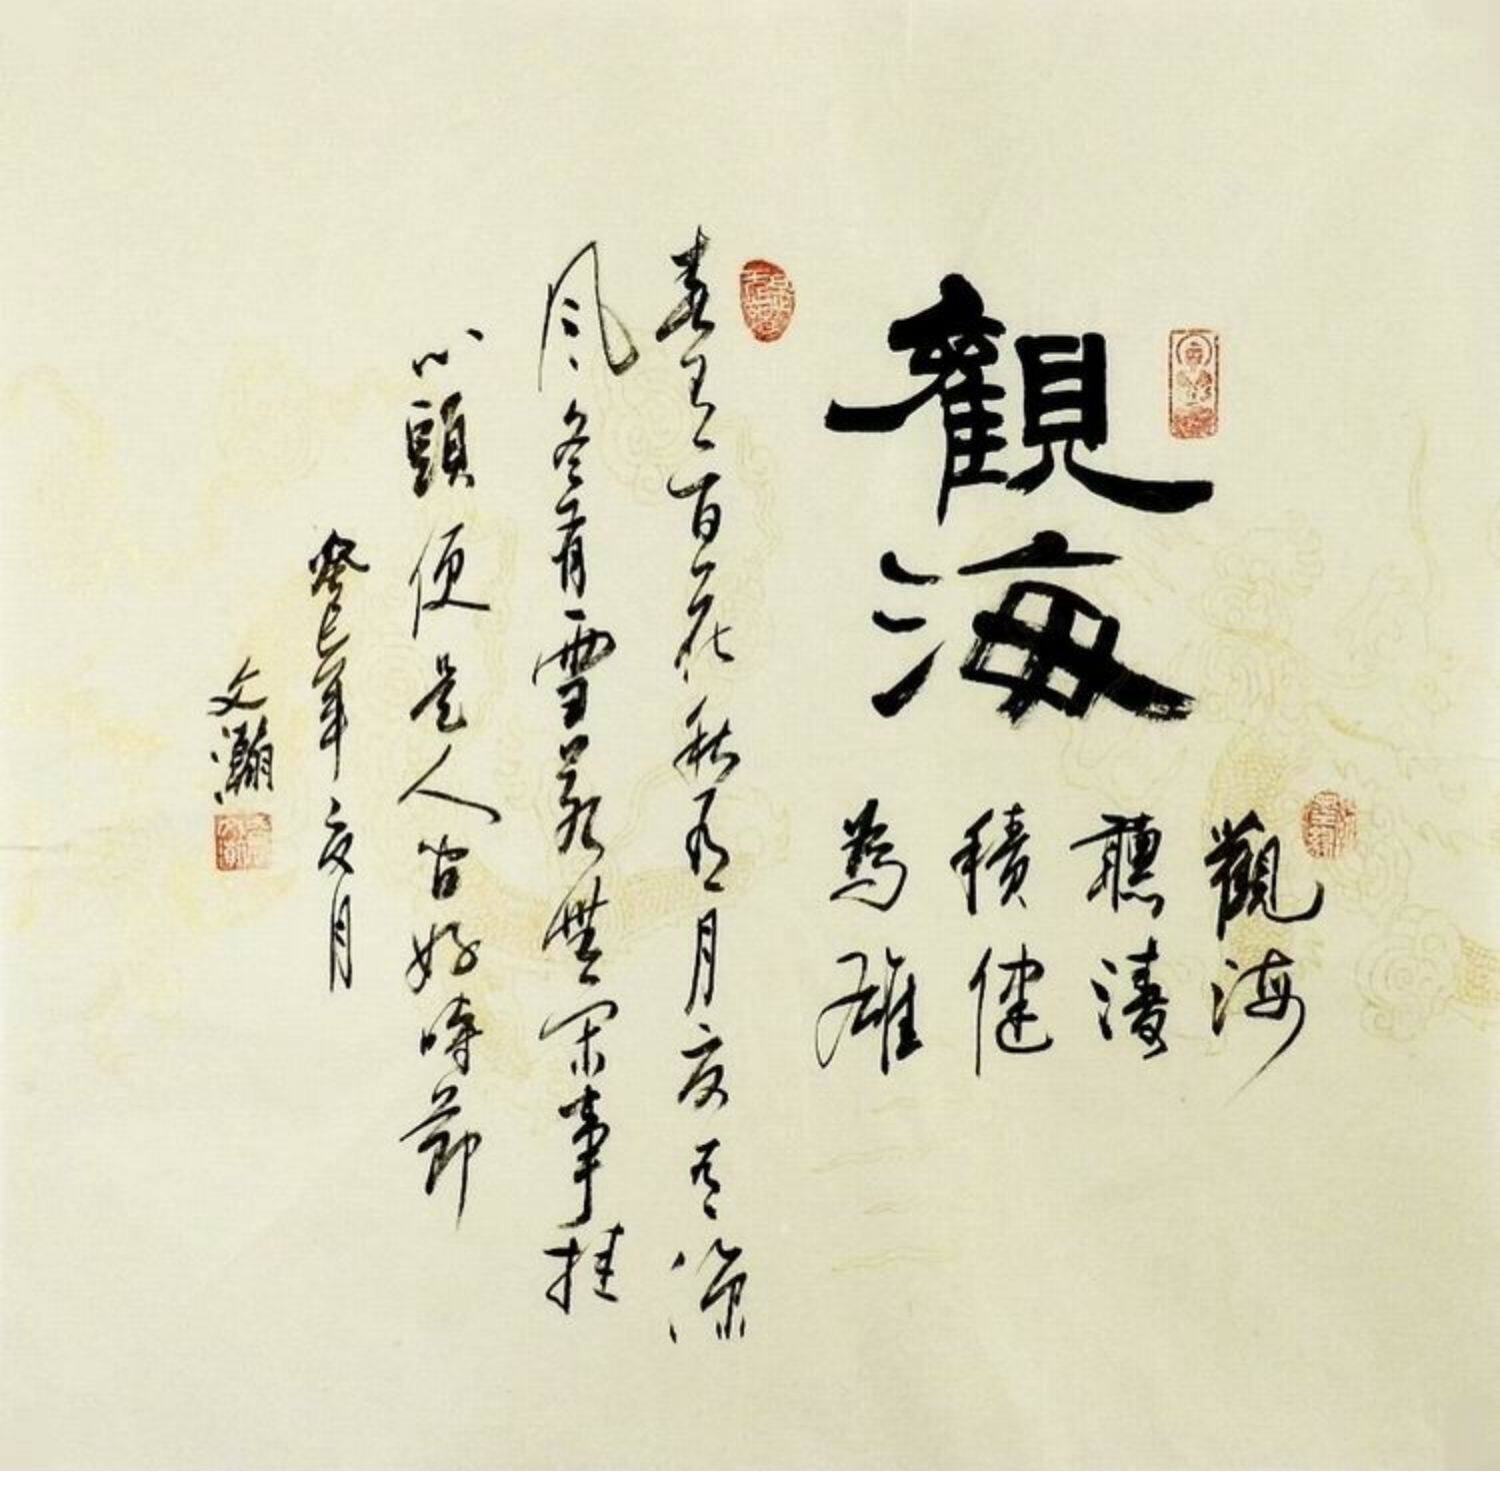 觀海
觀海
聽濤
積健
為雄
春有百花秋有月夏有涼
风冬有雪若無闲事挂
心頭便是人間好時節
癸巳年夏月
文瀚